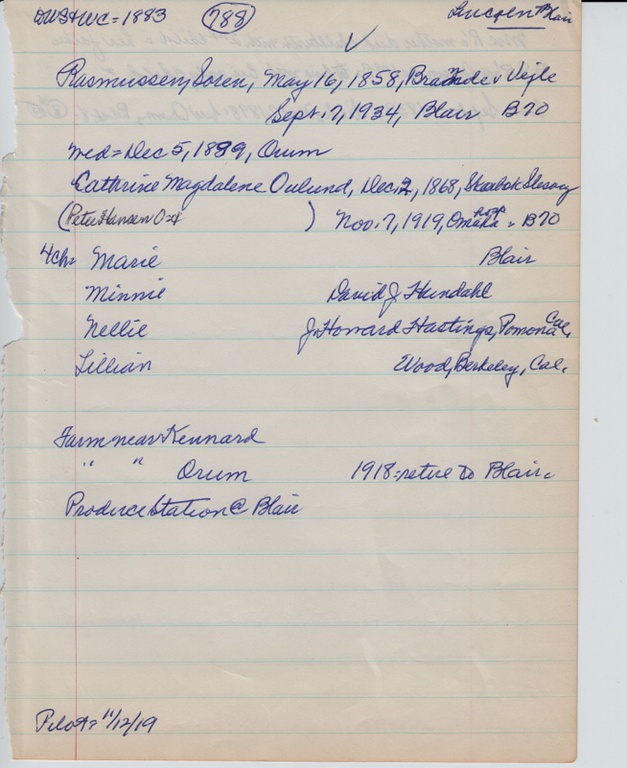 DWS+WC=1883 788 Lincoln Blair
Rasmussen, Soren, May 16, 1858, Vejle
Sept. 7, 1934, Blair B70
Med=Dec 5, 1889, Orum
Cathrine Magdalene Oulund, Dec. 2, 1868,
(Peter Hansen O=4 ) Nov. 7, 1919, Omaha hosp = B70
4ch= Marie Blair
Minnie David J Hundahl
Nellie J. Howard Hastings, Pomona Cal.
Lillian Wood, Berkeley, Cal.
Farm near Kennard
" " Orum 1918=retire to Blair.
Produce Station @ Blair
Pilot= 11/12/19